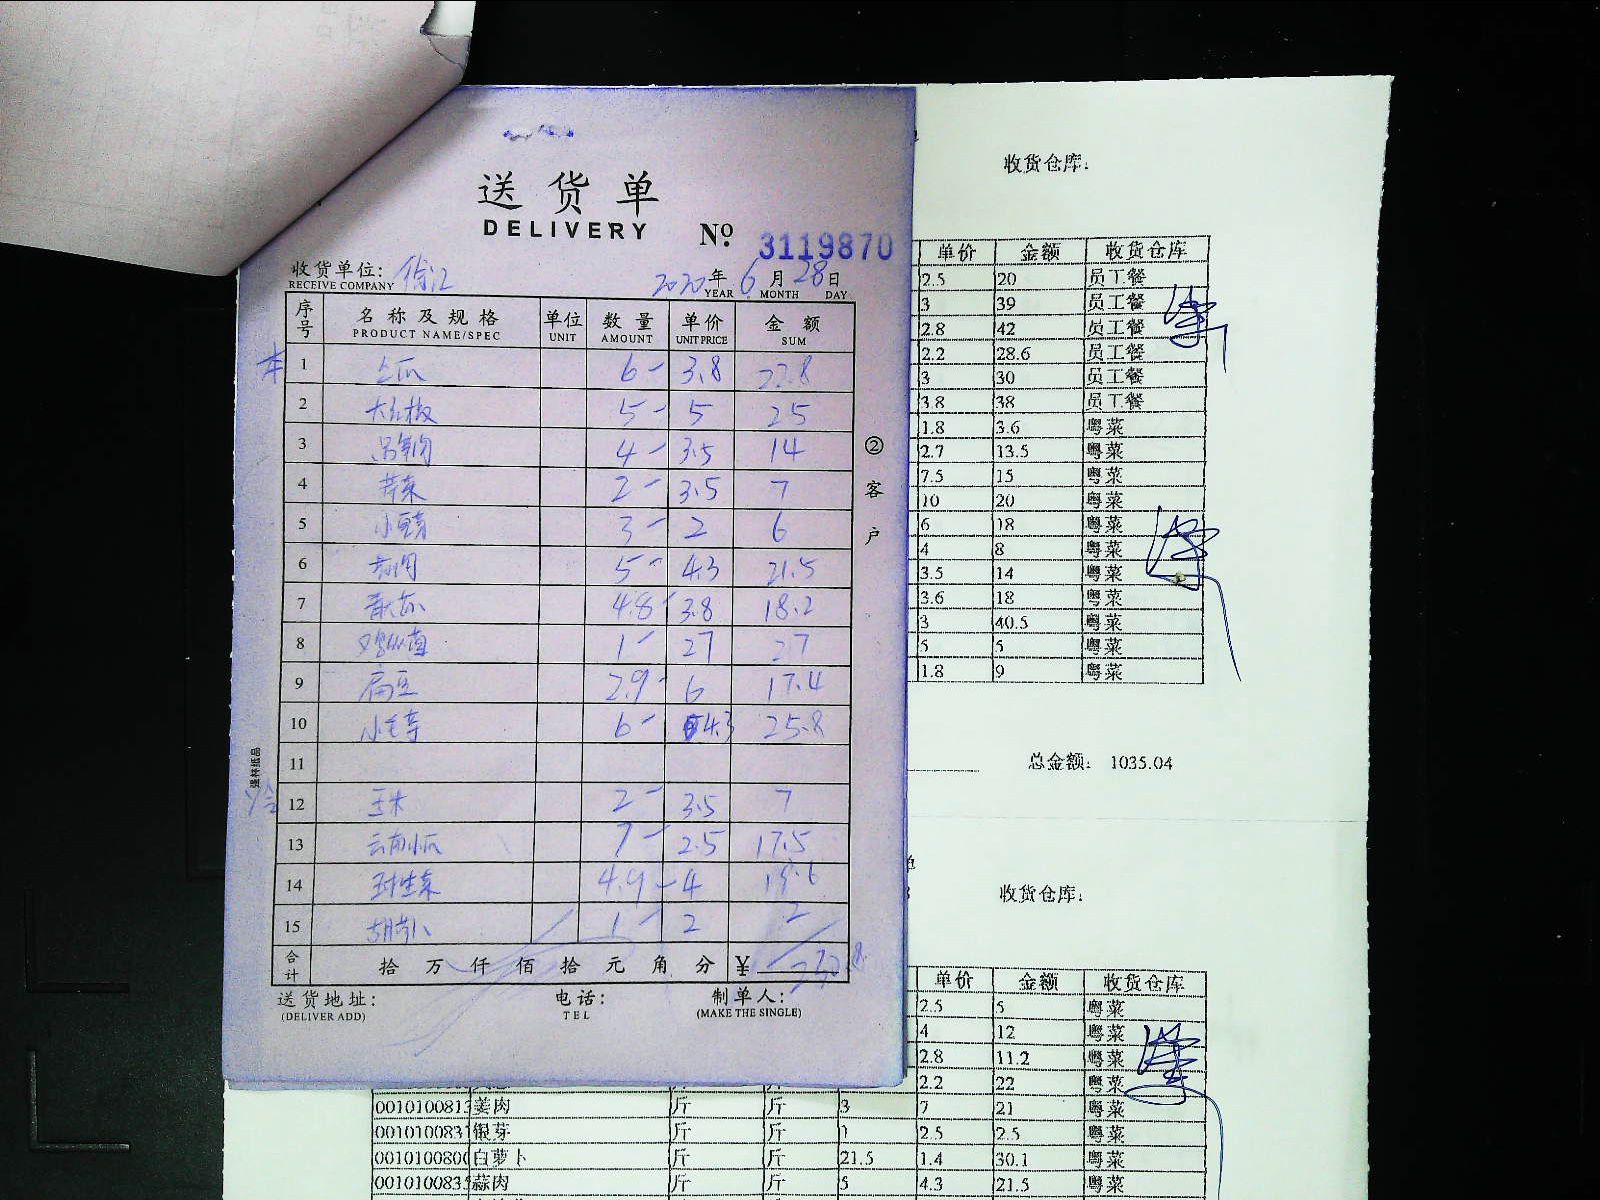 送货单
DELIVERY
№ 3119870
收货单位:
RECEIVE COMPANY
2020年6月28日
YEAR MONTH DAY
序号 名称及规格 单位 数量 单价 金额
PRODUCT NAME/SPEC UNIT AMOUNT UNIT PRICE SUM
1 6- 3.8 22.8
2 5- 5 25
3 4- 3.5 14
4 芹菜 2- 3.5 7
5 3- 2 6
6 5- 4.3 21.5
7 4.8 3.8 18.2
8 1- 27 27
9 扁豆 2.9- 6 17.4
10 6- 4.3 25.8
11
12 玉米 2- 3.5 7
13 云南小瓜 7- 2.5 17.5
14 4.9- 4 19.6
15 1- 2 2
合计 拾万仟佰拾元角分 ¥
送货地址: 电话: 制单人:
(DELIVER ADD) TEL (MAKE THE SINGLE)
②客户
强林纸品
收货仓库:
单价 金额 收货仓库
2.5 20 员工餐
3 39 员工餐
2.8 42 员工餐
2.2 28.6 员工餐
3 30 员工餐
3.8 38 员工餐
1.8 3.6 粤菜
2.7 13.5 粤菜
7.5 15 粤菜
10 20 粤菜
6 18 粤菜
4 8 粤菜
3.5 14 粤菜
3.6 18 粤菜
3 40.5 粤菜
5 5 粤菜
1.8 9 粤菜
总金额: 1035.04
收货仓库:
单价 金额 收货仓库
2.5 5 粤菜
4 12 粤菜
2.8 11.2 粤菜
2.2 22 粤菜
0010100813 姜肉 斤 斤 3 7 21 粤菜
001010083 银芽 斤 斤 1 2.5 2.5 粤菜
001010080 白萝卜 斤 斤 21.5 1.4 30.1 粤菜
001010083 蒜肉 斤 斤 5 4.3 21.5 粤菜